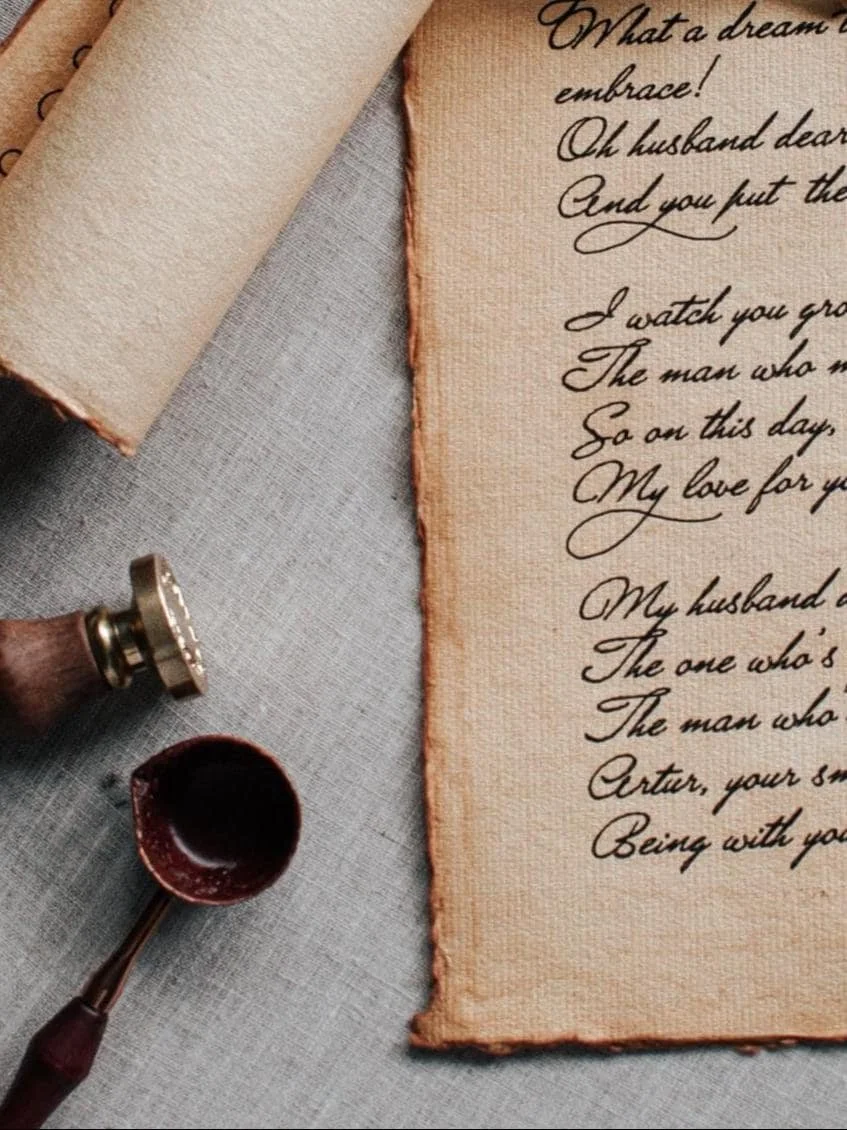 What a dream
embrace!
Oh husband dear
And you put the
I watch you gro
The man who m
So on this day,
My love for yo
My husband a
The one who's
The man who'
Artur, your sm
Being with you